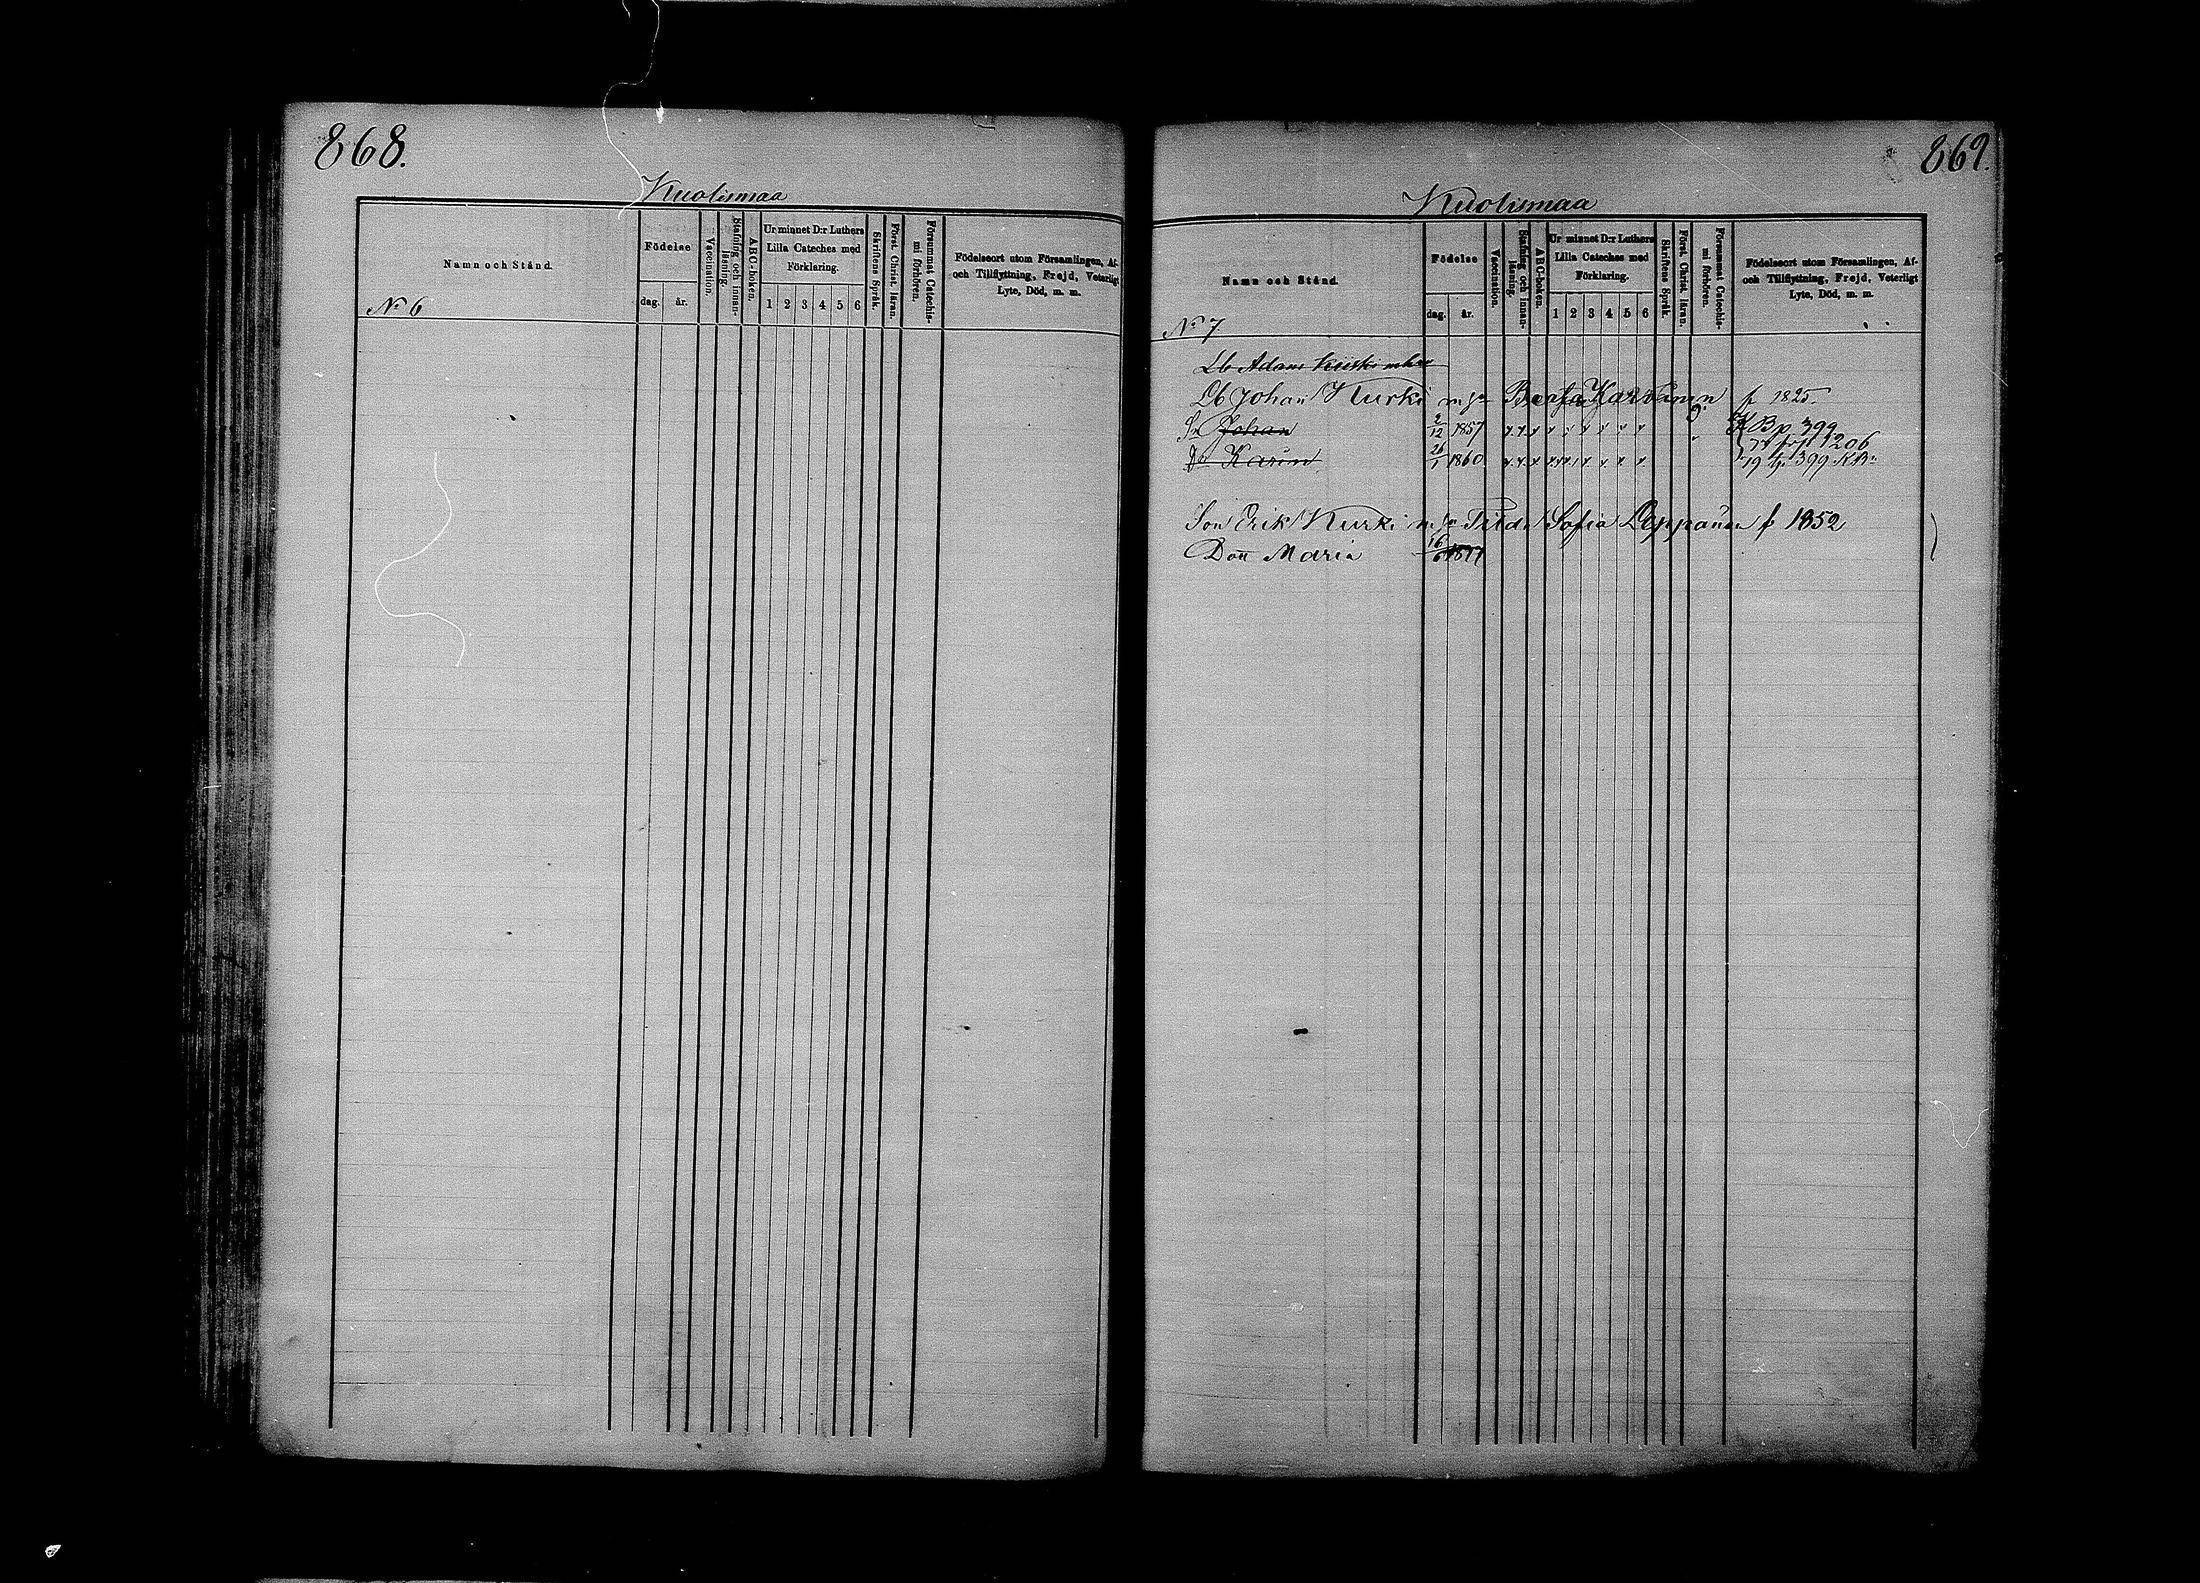 868.
Kuolismaa
Namn och Stånd.
Födelse
dag. år.
Vaccination.
Stafning och innan-läsning.
ABC-boken.
Ur minnet D:r Luthers Lilla Cateches med Förklaring.
1 2 3 4 5 6
Skriftens Språk.
Först. Christ. läran.
Försummat Catechis-mi förhören.
Födelseort utom Församlingen, Af-
och Tillflyttning, Frejd, Veterligt
Lyte, Död, m. m.
No 6
869.
Kuolismaa
Namn och Stånd.
Födelse
dag. år.
Vaccination.
Stafning och innan-läsning.
ABC-boken.
Ur minnet D:r Luthers Lilla Cateches med Förklaring.
1 2 3 4 5 6
Skriftens Språk.
Först. Christ. läran.
Försummat Catechis-mi förhören.
Födelseort utom Församlingen, Af-
och Tillflyttning, Frejd, Veterligt
Lyte, Död, m. m.
No 7
Lb Adam
Lb Johan Kurki m ja Karvanen f 1825.
Sn Johan 2/12 1857 KB p 399
1206
Dr Karin 26/1 1860 399 KB
Son Erik Kurki m ja Sofia Leppänen f 1852
Dott Maria 16/6 1877